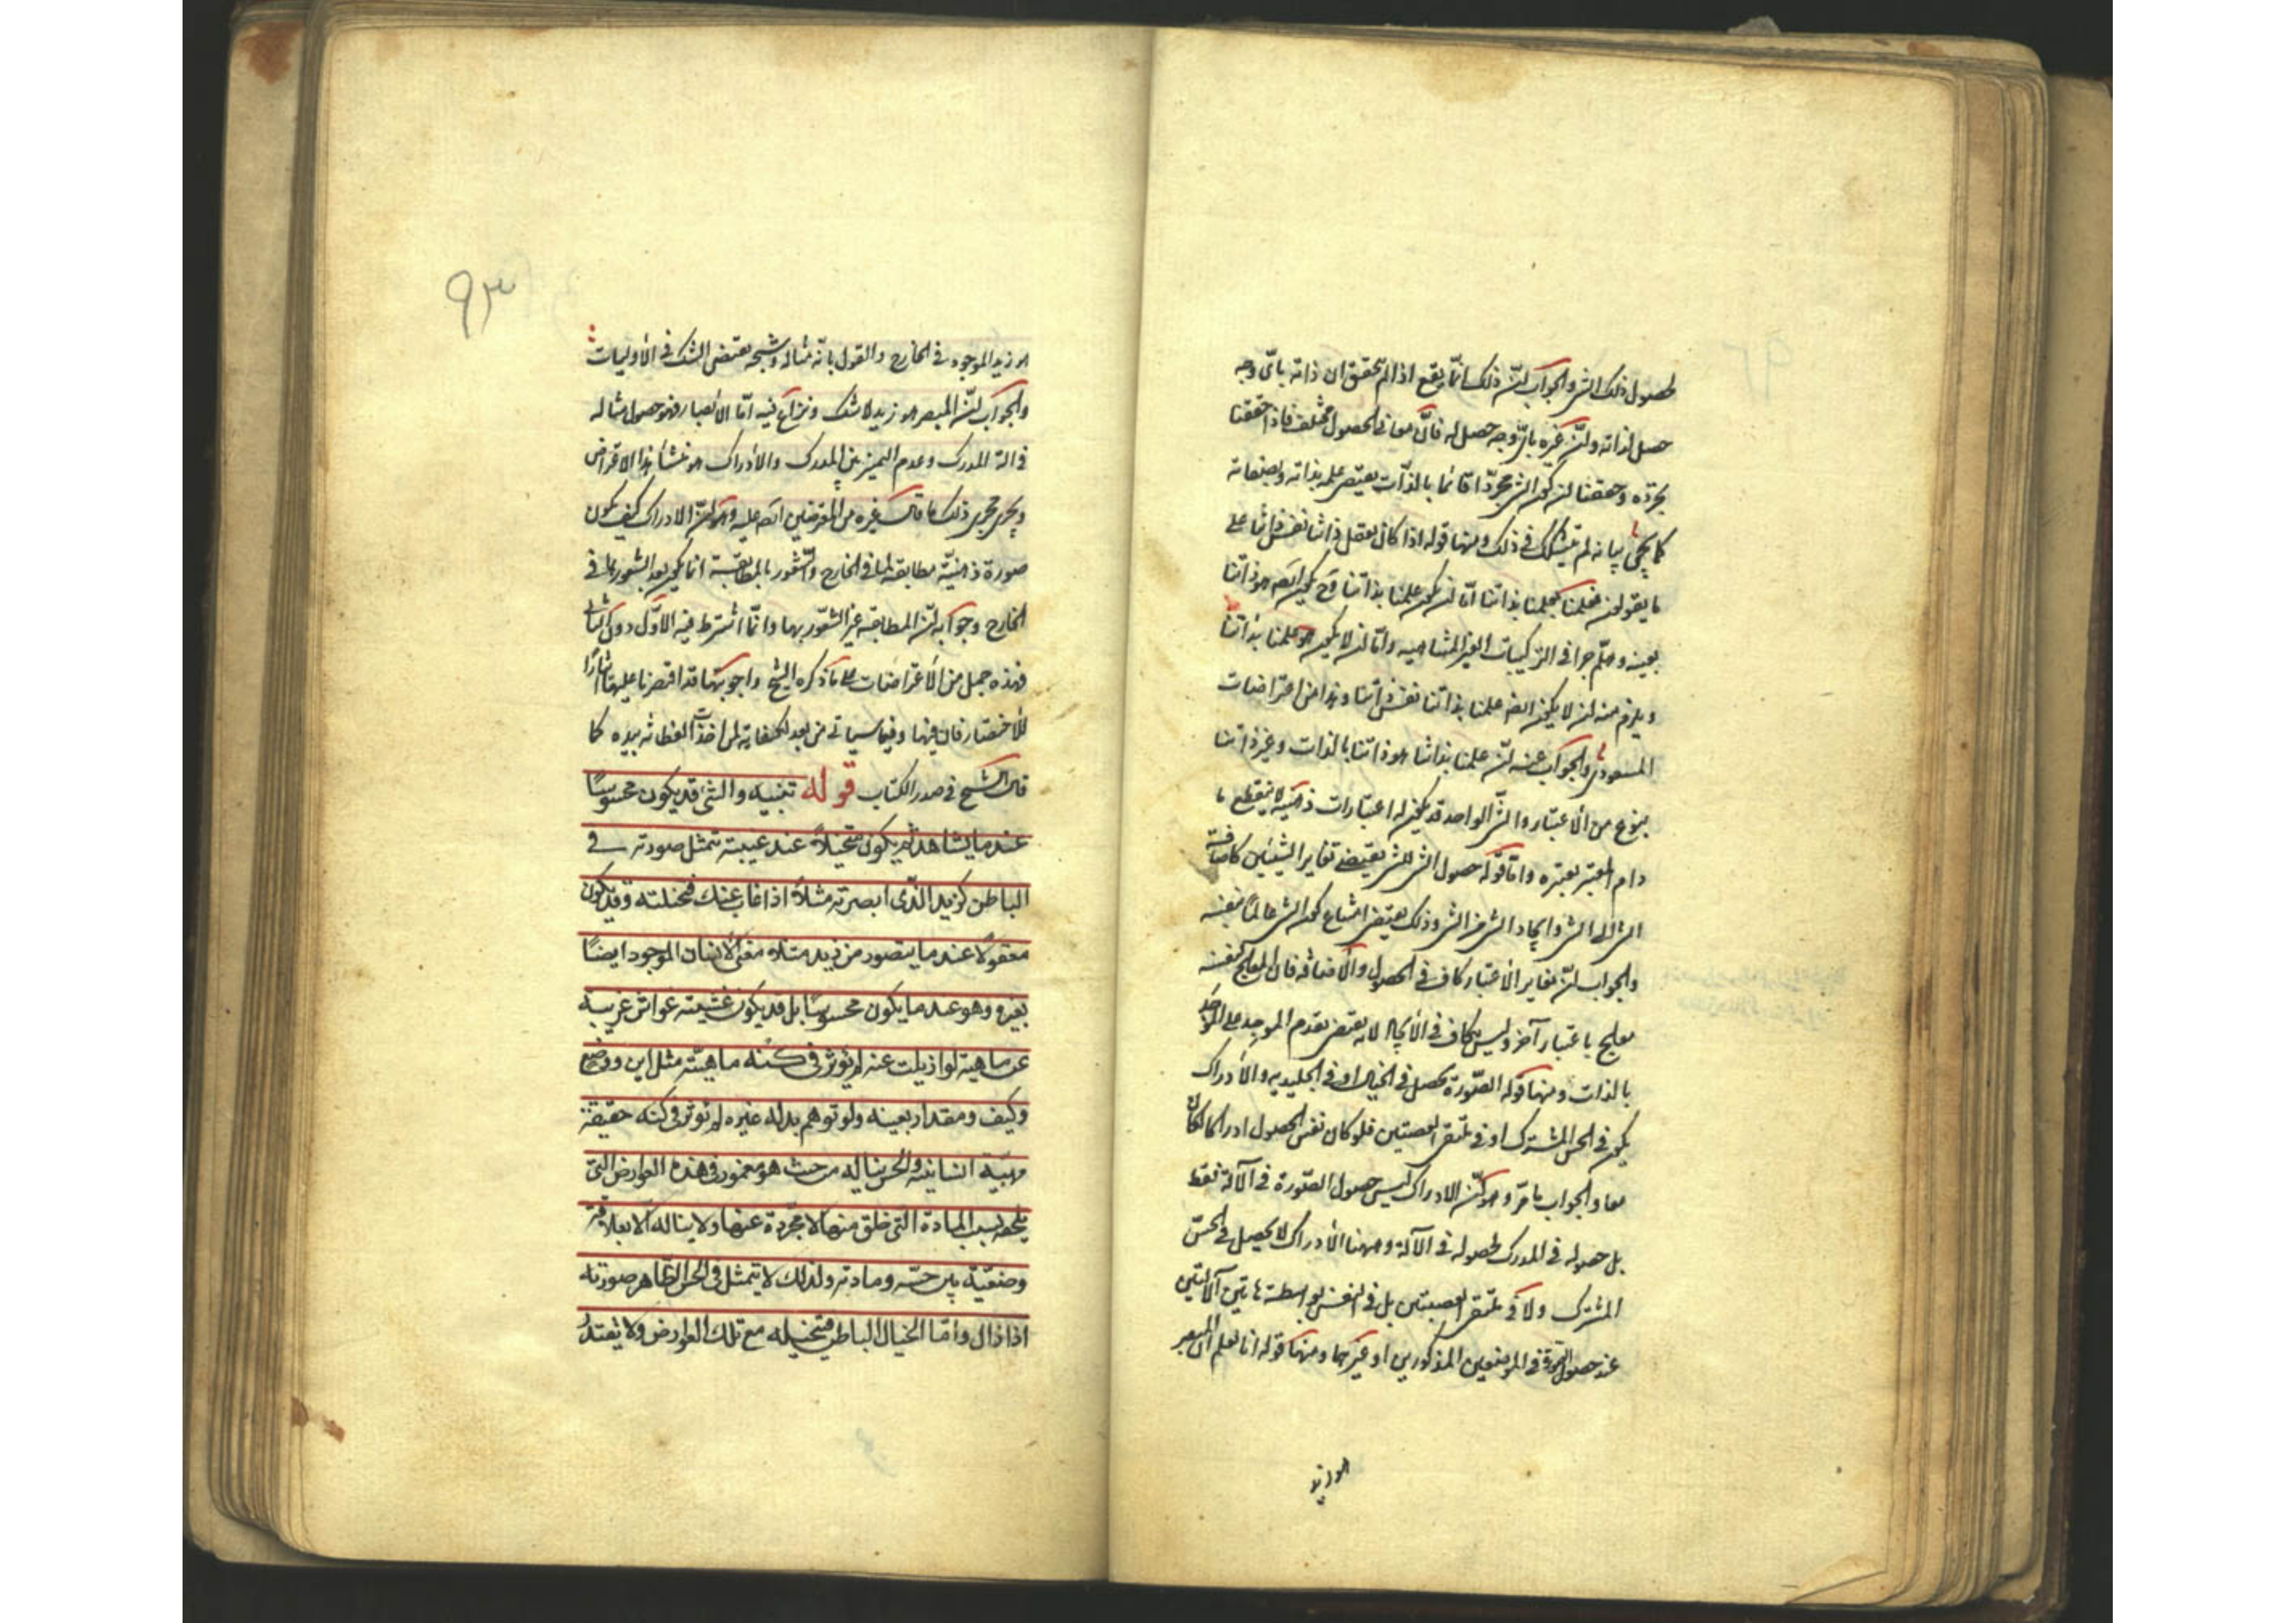 لحصول ذلك الشئ والجواب ان ذلك انما يقع اذا لم تحقق ان ذاته بأى وجه
حصل لذاته وان غيره بأى وجه حصل له فان معانى الحصول مختلفة فاذا حققنا
تجرده وحققنا ان كون الشئ مجردا قائما بالذات يقتضى علمه بذاته وبصفاته
كما يجئ بيانه لم نتشكك فى ذلك ومنها قوله اذا كان تعقل ذاتنا نفس ذاتنا على
ما يقولون فعلمنا بعلمنا بذاتنا اما ان يكون علمنا بذاتنا وح يكون ايضه هو ذاتنا
بعينه وهلم جرا فى التركيبات الغير المتناهيه واما ان لا يكون هو علمنا بذاتنا
ويلزم منه ان لا يكون ايضه علمنا بذاتنا نفس ذاتنا وهذا من اعتراضات
المسعودى والجواب عنه ان علمنا بذاتنا هو ذاتنا بالذات وغير ذاتنا
بنوع من الأعتبار والشئ الواحد قد يكون له اعتبارات ذهنية لا ينقطع ما
دام المعتبر يعتبره واما قوله حصول الشئ للشئ يقتضى تغاير الشيئين كاضافة
الشئ الى الشئ وايجاد الشئ الشئ وذلك يقتضى امتناع كون الشئ عالما بنفسه
والجواب ان تغاير الأعتبار كاف فى الحصول والأضافة فان المعالج لنفسه
معالج باعتبار آخر وليس بكاف فى الأيجاد لانه يقتضى تقدم الموجد على الموجد
بالذات ومنها قوله الصورة تحصل فى الخيال او فى الجليدية والأدراك
يكون فى الحس المشترك او فى ملتقى العصبتين فلو كان نفس الحصول ادراكا لكان
معا والجواب ما مر وهو ان الادراك ليس حصول الصورة فى الآلة فقط
بل حصوله فى المدرك لحصوله فى الآلة وههنا الأدراك لا يحصل فى الحس
المشترك ولا فى ملتقى العصبتين بل فى النفس بواسطة هاتين الآلتين
عند حصول الصورة فى الموضعين المذكورين او غيرهما ومنها قوله انا نعلم ان المبصر
هو زيد
٩٣
هو زيد الموجود فى الخارج والقول بانه مثاله وشبحه يقتضى الشك فى الأوليات
والجواب ان المبصر هو زيد لا شك ونزاع فيه اما الأبصار فهو حصول مثاله
فى آلة المدرك وعدم التميز بين المدرك والأدراك هو منشأ هذا الاعتراض
ويجرى مجرى ذلك ما قال غيره من المعترضين ايضه عليه وهو ان الادراك كيف يكون
صورة ذهنية مطابقة لما فى الخارج والشعور بالمطابقة انما يكون بعد الشعور بما فى
الخارج وجوابه ان المطابقة غير الشعور بها وانما اشترط فيه الأول دون الثانى
فهذه جمل من الأعتراضات على ما ذكره الشيخ واجوبتها قد اقتصرنا عليها ايثارا
للأختصار فان فيها وفيما سيأتى من بعد لكفاية لمن اخذت الفطانة بيده كما
قال الشيخ فى صدر الكتاب قوله تنبيه والشئ قد يكون محسوسا
عند ما يشاهد ثم يكون متخيلا عند غيبته تمثل صورته فى
الباطن كزيد الذى ابصرته مثلا اذا غاب عنك فتخيلته وقد يكون
معقولا عند ما يتصور من زيد مثلا معنى الأنسان الموجود ايضا
لغيره وهو عند ما يكون محسوسا بل قد يكون غشيته غواش غريبة
عن ماهيته لو ازيلت عنه لم تؤثر فى كنه ماهيته مثل اين ووضع
وكيف ومقدار بعينه ولو توهم بدله غيره لم تؤثر فى كنه حقيقة
مهية انسانيته والحس يناله من حيث هو مغمور فى هذه العوارض التى
يلحقه بسبب المادة التى خلق منها لا مجردة عنها ولا يناله الا بعلاقة
وضعية بين حسه ومادته ولذلك لا يتمثل فى الحس الظاهر صورته
اذا زال واما الخيال الباطن فتخيله مع تلك العوارض ولا يقتدر